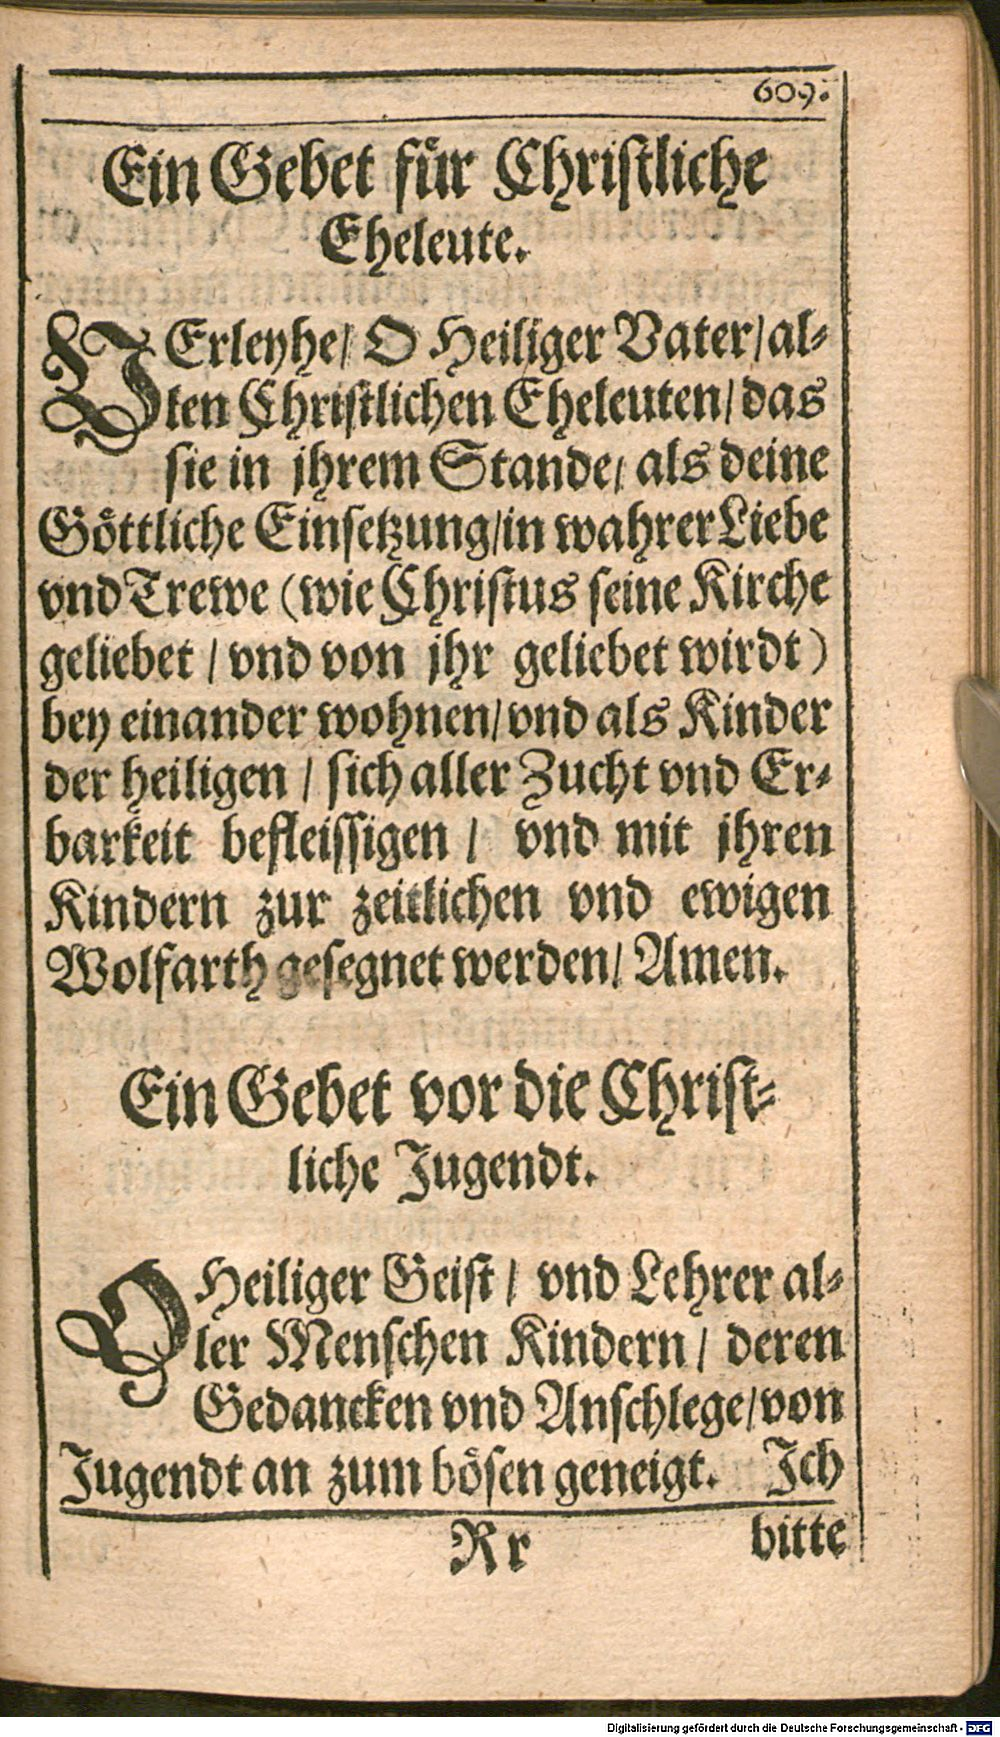 609.
Ein Gebet für Christliche
Eheleute.
VErleyhe/ O Heiliger Vater/ al-
len Christlichen Eheleuten/ das
sie in jhrem Stande/ als deine
Göttliche Einsetzung/ in wahrer Liebe
vnd Trewe (wie Christus seine Kirche
geliebet / vnd von jhr geliebet wirdt)
bey einander wohnen/ vnd als Kinder
der heiligen / sich aller Zucht vnd Er-
barkeit befleissigen / vnd mit jhren
Kindern zur zeitlichen vnd ewigen
Wolfarth gesegnet werden/ Amen.
Ein Gebet vor die Christ-
liche Jugendt.
O Heiliger Geist / vnd Lehrer al-
ler Menschen Kindern / deren
Gedancken vnd Anschlege/ von
Jugendt an zum bösen geneigt. Ich
Rr bitte
Digitalisierung gefördert durch die Deutsche Forschungsgemeinschaft - DFG